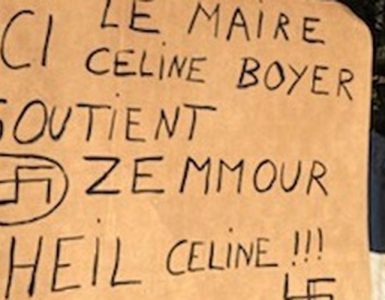 LE MAIRE
CI CELINE BOYER
SOUTIENT
ZEMMOUR
HEIL CELINE!!!